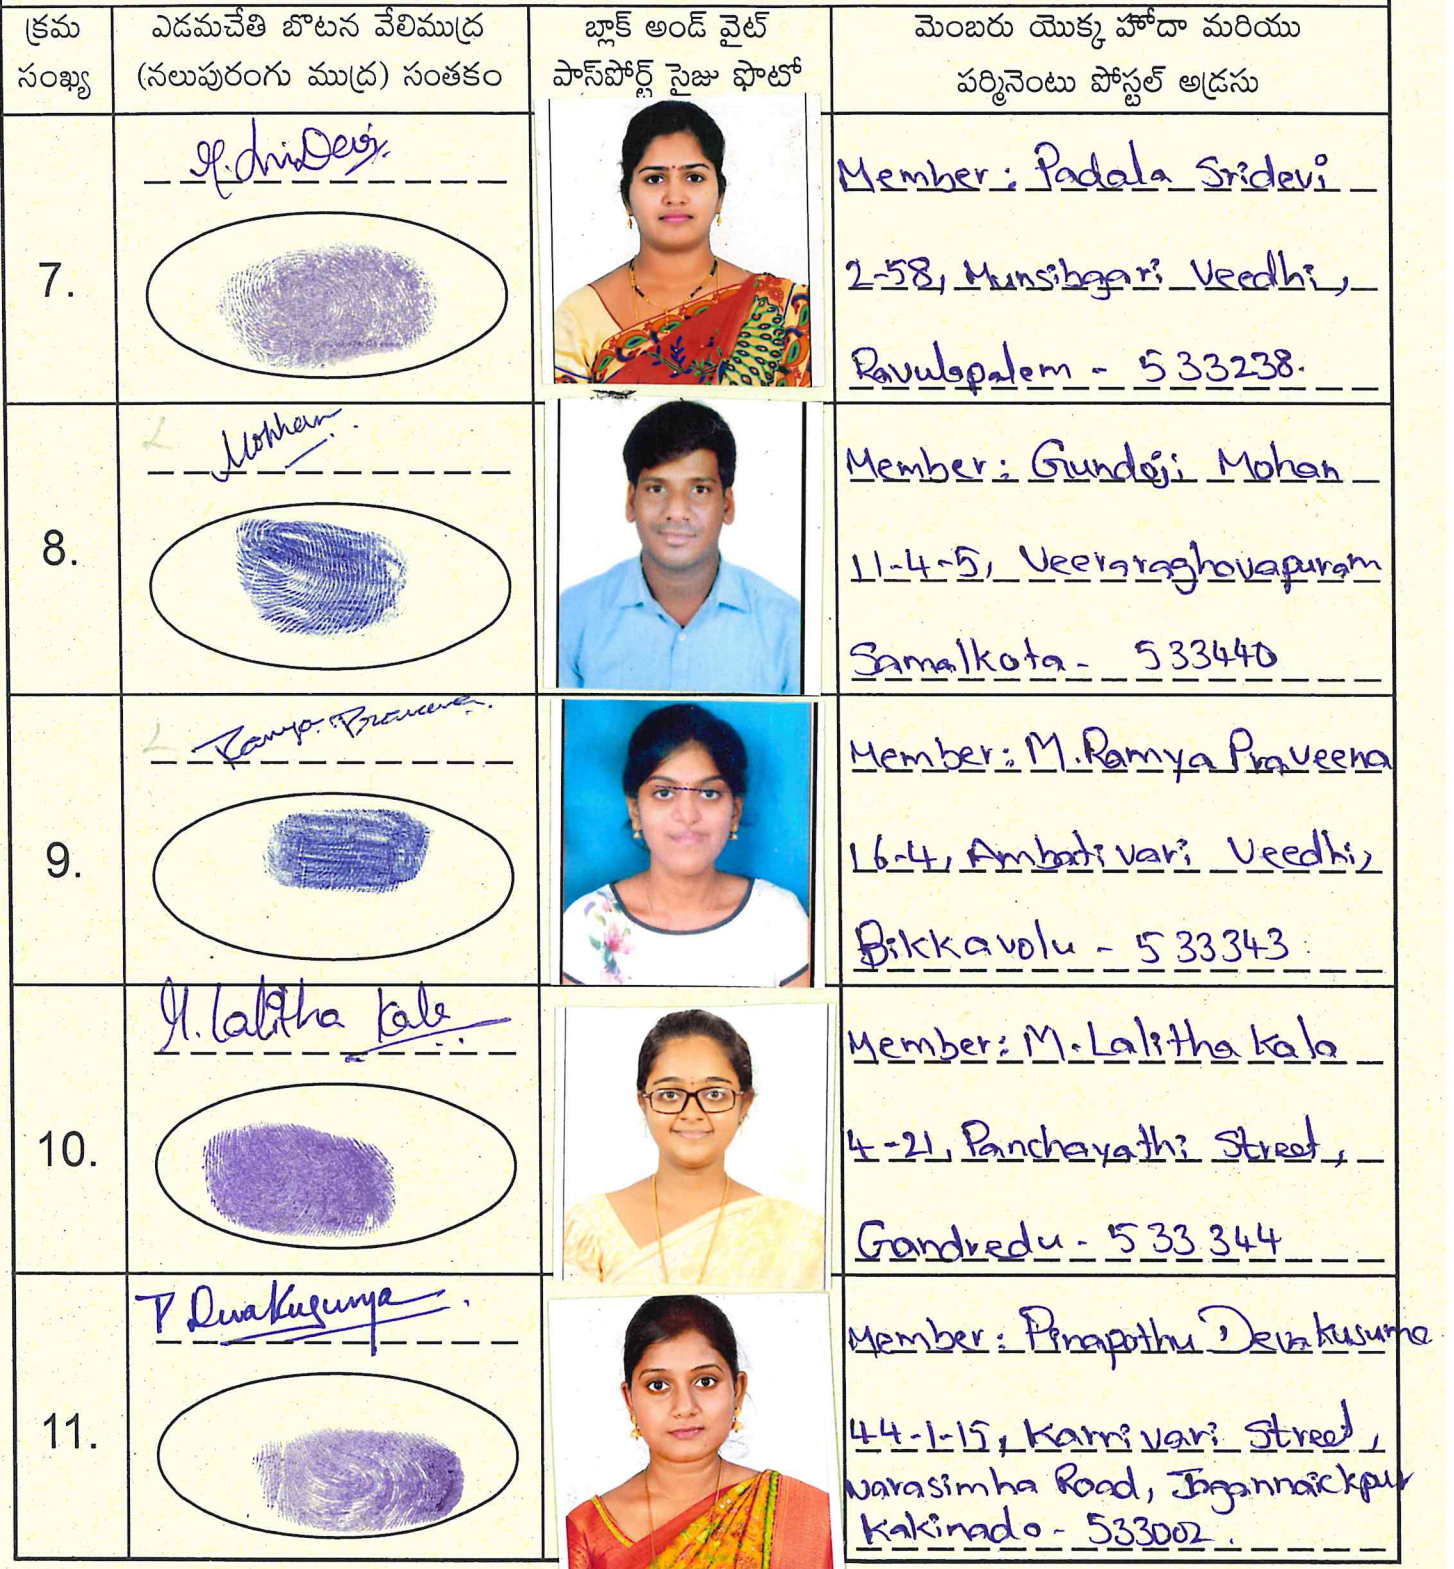 క్రమ సంఖ్య
ఎడమచేతి బొటన వేలిముద్ర (నలుపురంగు ముద్ర) సంతకం
బ్లాక్ అండ్ వైట్ పాస్‌పోర్ట్ సైజు ఫొటో
మెంబరు యొక్క హోదా మరియు పర్మినెంటు పోస్టల్ అడ్రసు
7.
M. Sri Devi
Member: Padala Sridevi
2-58, Munsibgari Veedhi,
Ravulapalem - 533238.
8.
Mohhan
Member: Gundoji Mohan
11-4-5, Veeraraghovapuram
Samalkota - 533440
9.
Ramya Praveena
Member: M. Ramya Praveena
16-4, Ambati vari Veedhi,
Bikkavolu - 533343
10.
M. Lalitha Kala
Member: M. Lalitha Kala
4-21, Panchayathi Street,
Gandredu - 533344
11.
Member: Pinapothu Deva Kusuma
44-1-15, Karri vari Street,
Narasimha Road, Jagannaickpur
Kakinada - 533002.